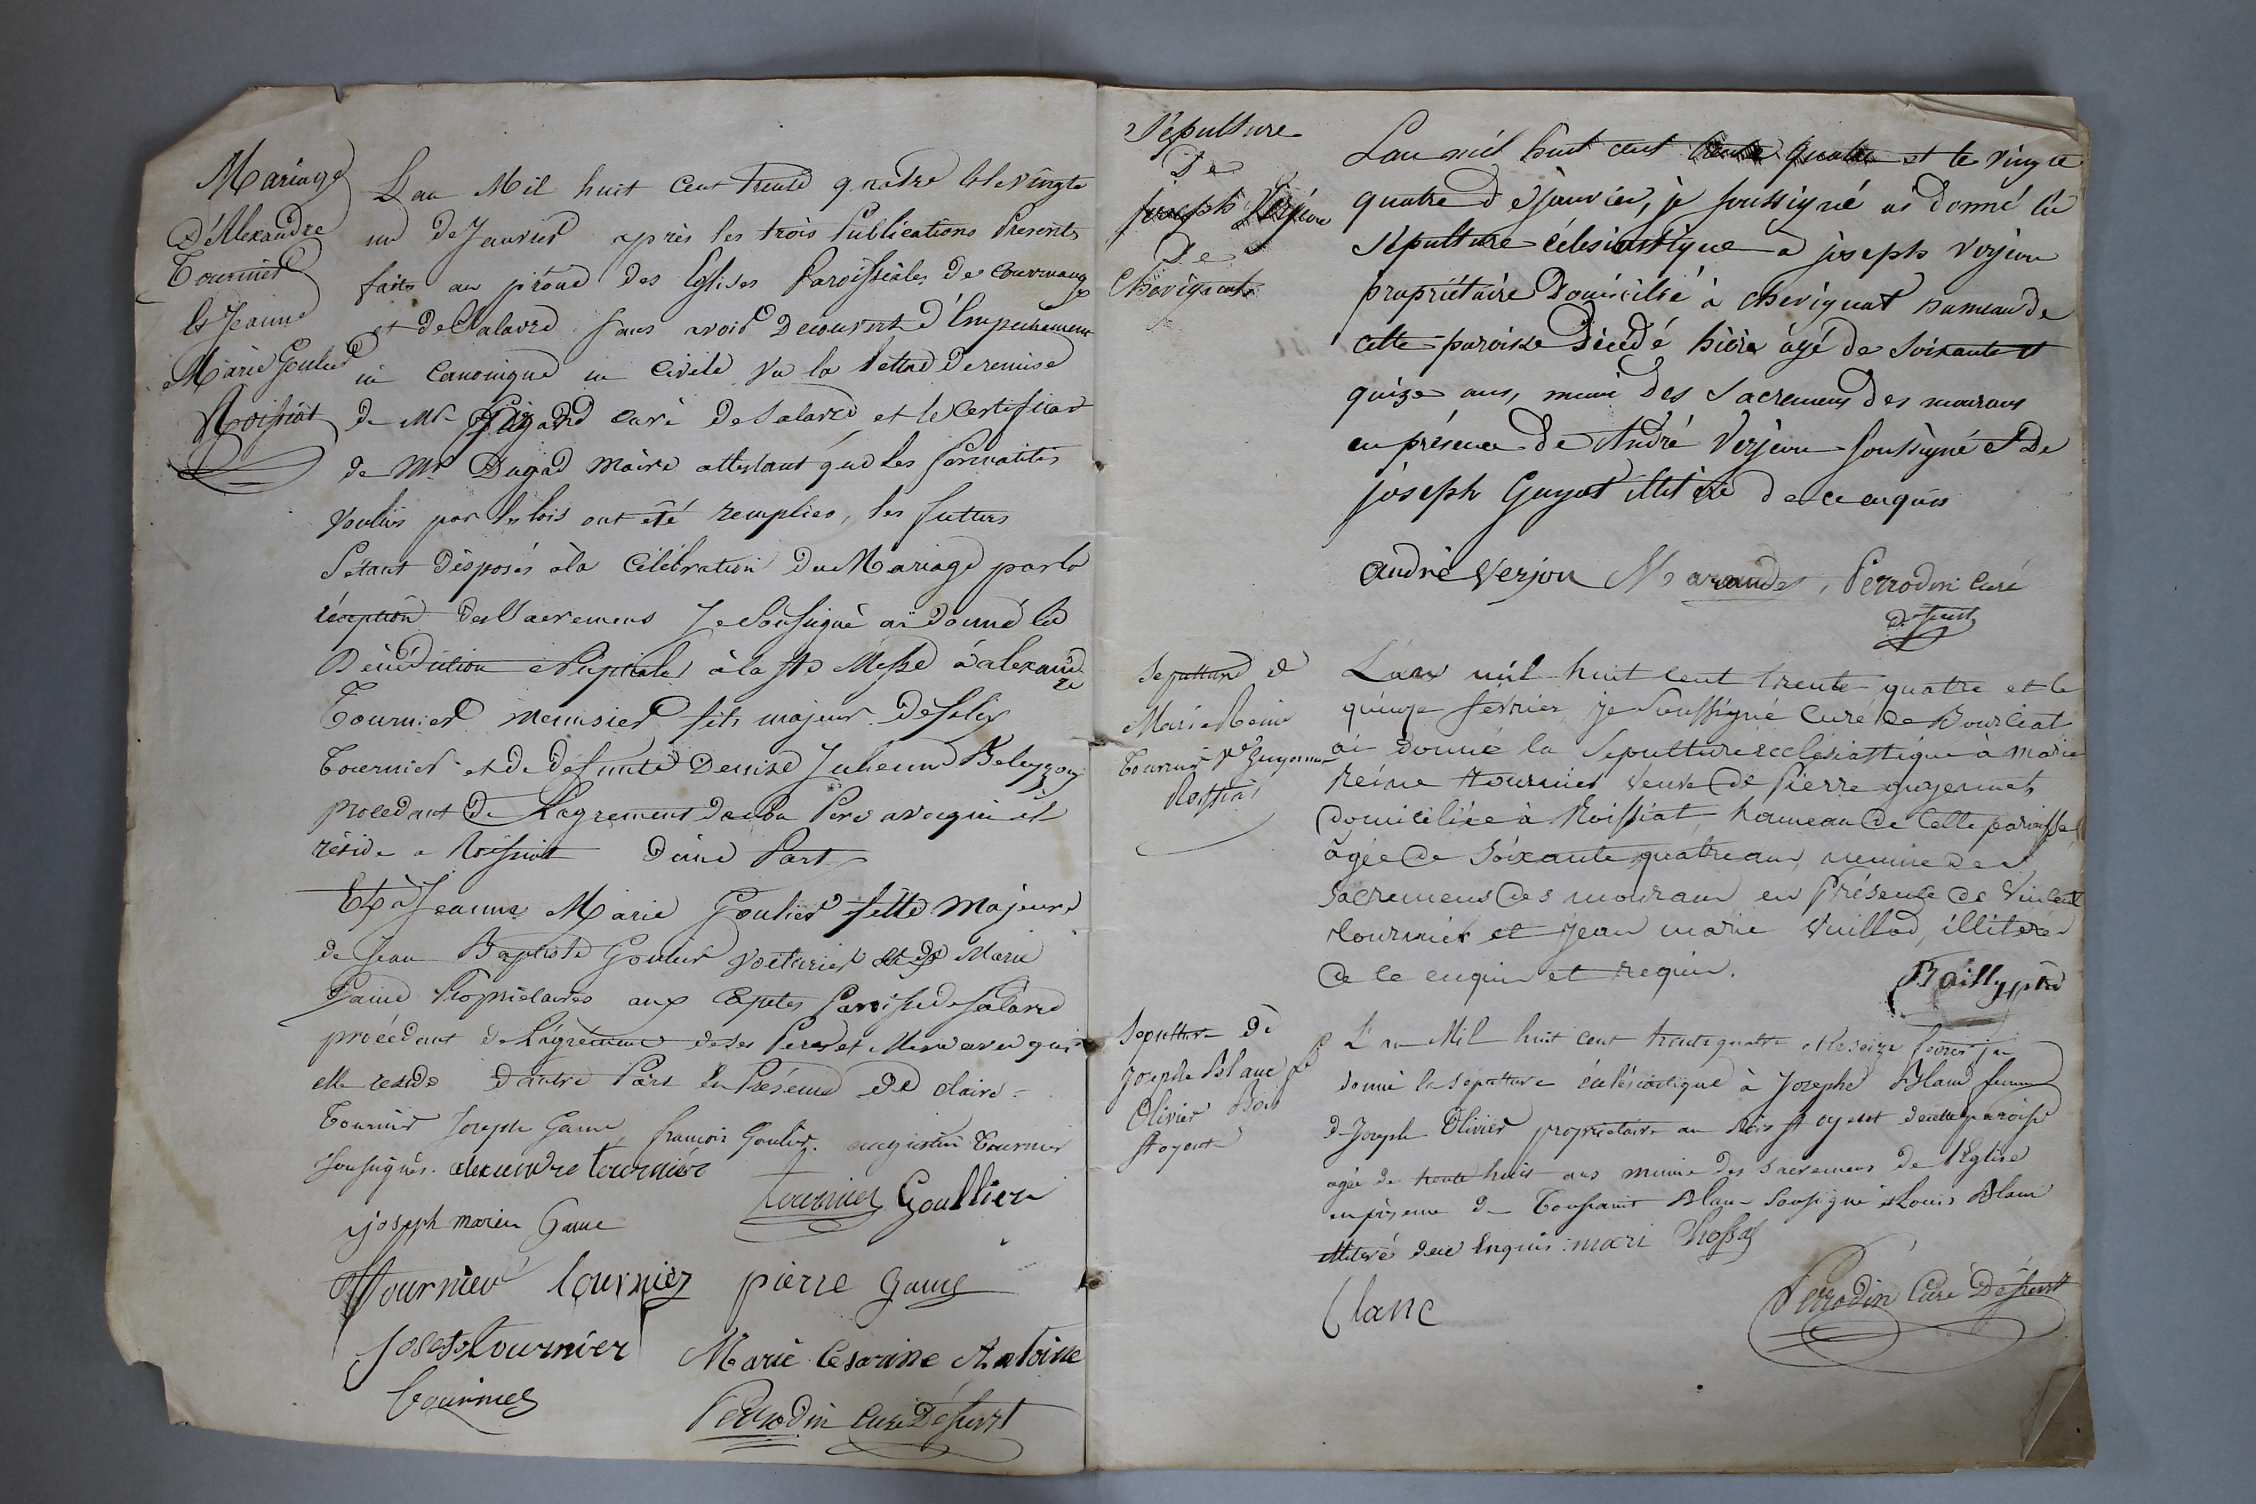 Mariage
D'Alexandre
Tournier
Et Jeanne
Marie Goulier
Roissiat
L'an Mil huit Cent trente quatre et le vingt
un de Janvier après les trois Publications Presents
faits au prône des Eglises Paroissiales de Courmangoux
et de Salavre sans avoir Decouvert d'Empechement
ni Canonique ni Civile Vu la lettre de remise
de Mr curé de Salavre et le Certificat
de Mr Dugad Maire attestant que les formalités
voulues par les lois ont été remplies, les futurs
S'étant disposés à la Célébration du Mariage par la
réception des Sacremens Je Soussigné ai donné la
Bénédiction Nuptiale à la Ste Messe à alexand
re
Tournier menuisier fils majeur de felix
Tournier et de defunte Denise Julienne Beluzzon
procedant de L'agrement de son Pere avec qui il
réside a Roissiat d'une Part
Et à Jeanne Marie Goulier fille Majeure
de Jean Baptiste Goulier voiturier et de Marie
Game Propriétaires aux Paroisse de Salavre
procédant de L'agrément de ses Pere et Mere avec qui
elle reside d'autre Part En Présence de claire
Tournier Joseph Game, françois Goulier augustin Tournier
soussignés. alexandre tournier
tournier Goullier
joseph marie Game
Tournier tournier pierre Game
Joseph tournier Marie Cesarine Antoine
Tournier
Perrodin Curé Desservt
Sépulture
De
joseph Verjon
De
Chevignat
L'an mil huit cent trente quatre et le vingt
quatre de janvier, je soussigné ai donné la
Sépulture éclesiastique a joseph Verjon
propriétaire Domicilié à chevignat hameau de
cette paroisse Décédé hière âgé de soixante et
quize ans, muni des Sacremens des mourans
en présence de André Verjon soussigné et De
joseph Guyot illitéré de ce enquis
andré Verjon Marandet, Perrodin Curé
Desservt
Sepulture de
Marie Reine
Tournier Ve Guyennet
Roissiat
L'an mil huit cent trente quatre et le
quinze fevrier je Soussigné Curé de Bourciat
ai donné la Sepulture ecclesiastique à marie
Reine tournier veuve de Pierre guyennet
domiciliée à Roissiat, hameau de Cette paroisse
âgée de Soixante quatre ans, munie des
sacremens des mouran en Présence de Vincent
tournier et jean marie Vuillod, illiterés
de ce enquis et requis.
Bailly ptre
Sepulture de
Josephe Blanc fe
Olivier Bois
St oyent
L'an Mil huit cent trente quatre et le seize fevrier j'ai
donné la sépulture éclésiastique à Josephe Blanc femme
de Joseph Olivier propriétaire au Bois St oyent de cette paroisse
agée de trente huit ans munie des Sacremens de l'Eglise
en présence de Toussaint Blanc soussigné et Louis Blanc
illiteré de ce Enquis.
Clanc
Perrodin Curé Desservt